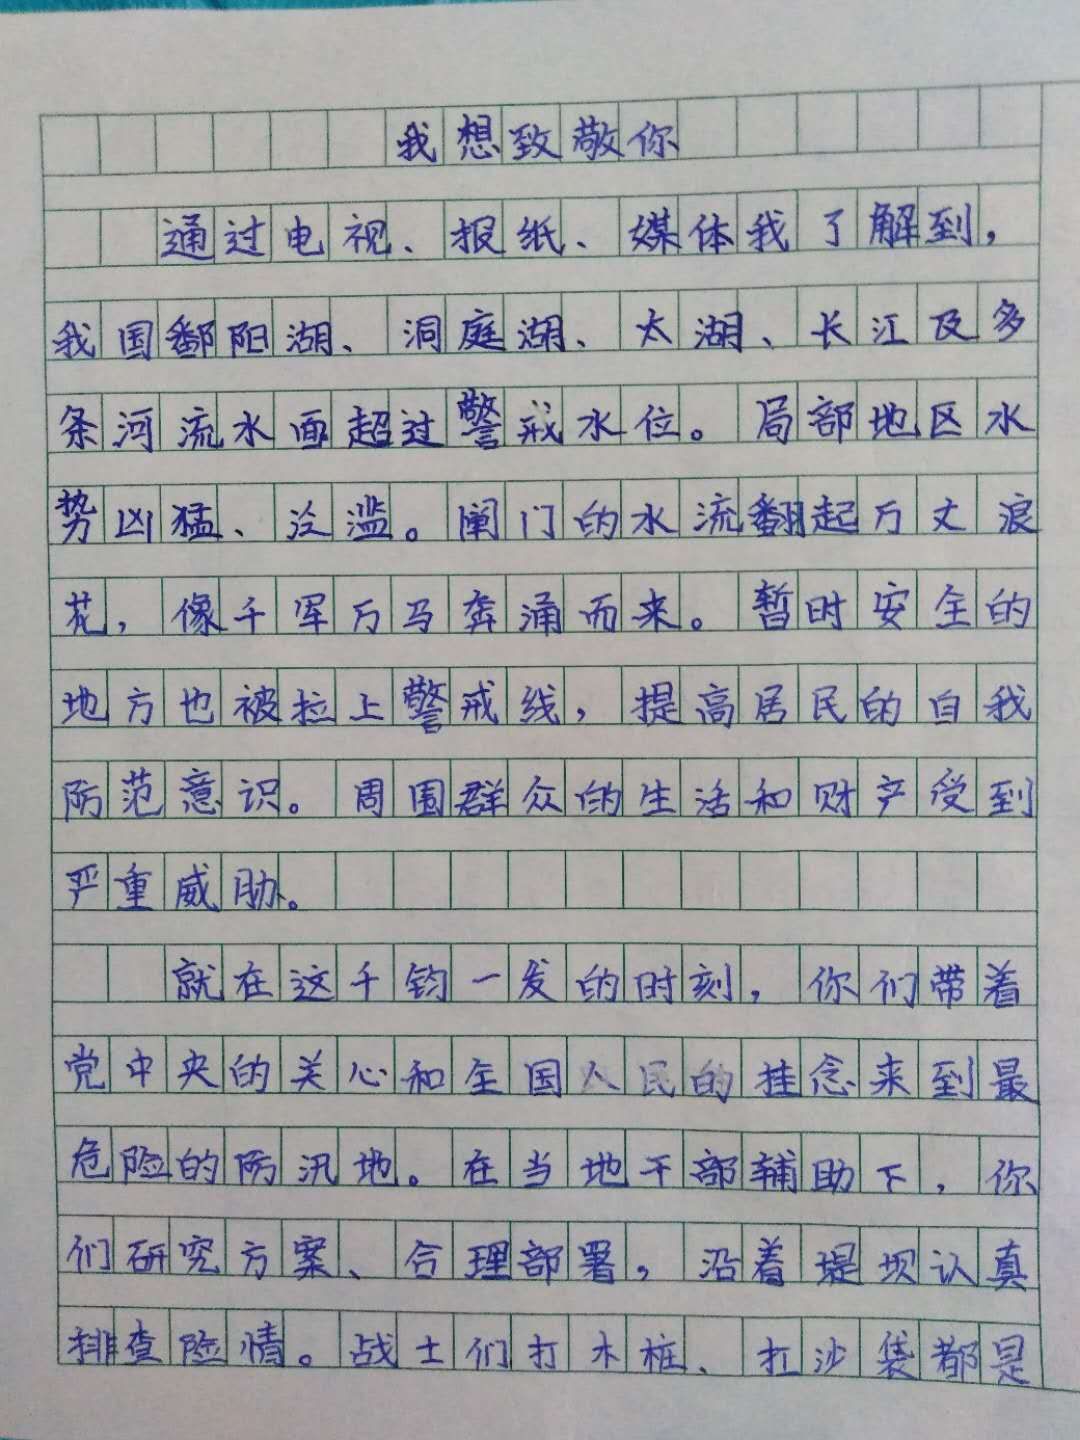 我想致敬你
通过电视、报纸、媒体我了解到，
我国鄱阳湖、洞庭湖、太湖、长江及多
条河流水面超过警戒水位。局部地区水
势凶猛、泛滥。闸门的水流翻起万丈浪
花，像千军万马奔涌而来。暂时安全的
地方也被拉上警戒线，提高居民的自我
防范意识。周围群众的生活和财产受到
严重威胁。
就在这千钧一发的时刻，你们带着
党中央的关心和全国人民的挂念来到最
危险的防汛地。在当地干部辅助下，你
们研究方案、合理部署，沿着堤坝认真
排查险情。战士们打木桩、扛沙袋都是